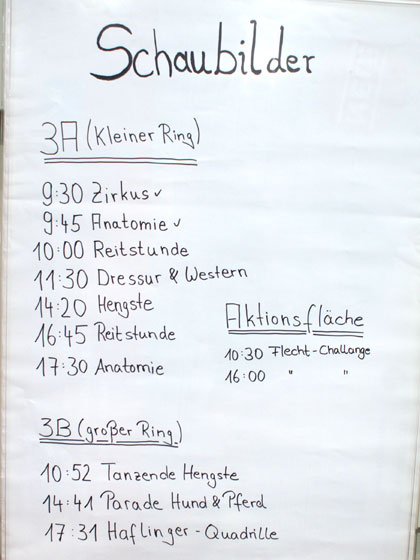 Schaubilder
3A (Kleiner Ring)
9:30 Zirkus ✓
9:45 Anatomie ✓
10:00 Reitstunde
11:30 Dressur & Western
14:20 Hengste
16:45 Reitstunde
17:30 Anatomie
Aktionsfläche
10:30 Flecht-Challange
16:00 " "
3B (großer Ring)
10:52 Tanzende Hengste
14:41 Parade Hund & Pferd
17:31 Haflinger - Quadrille